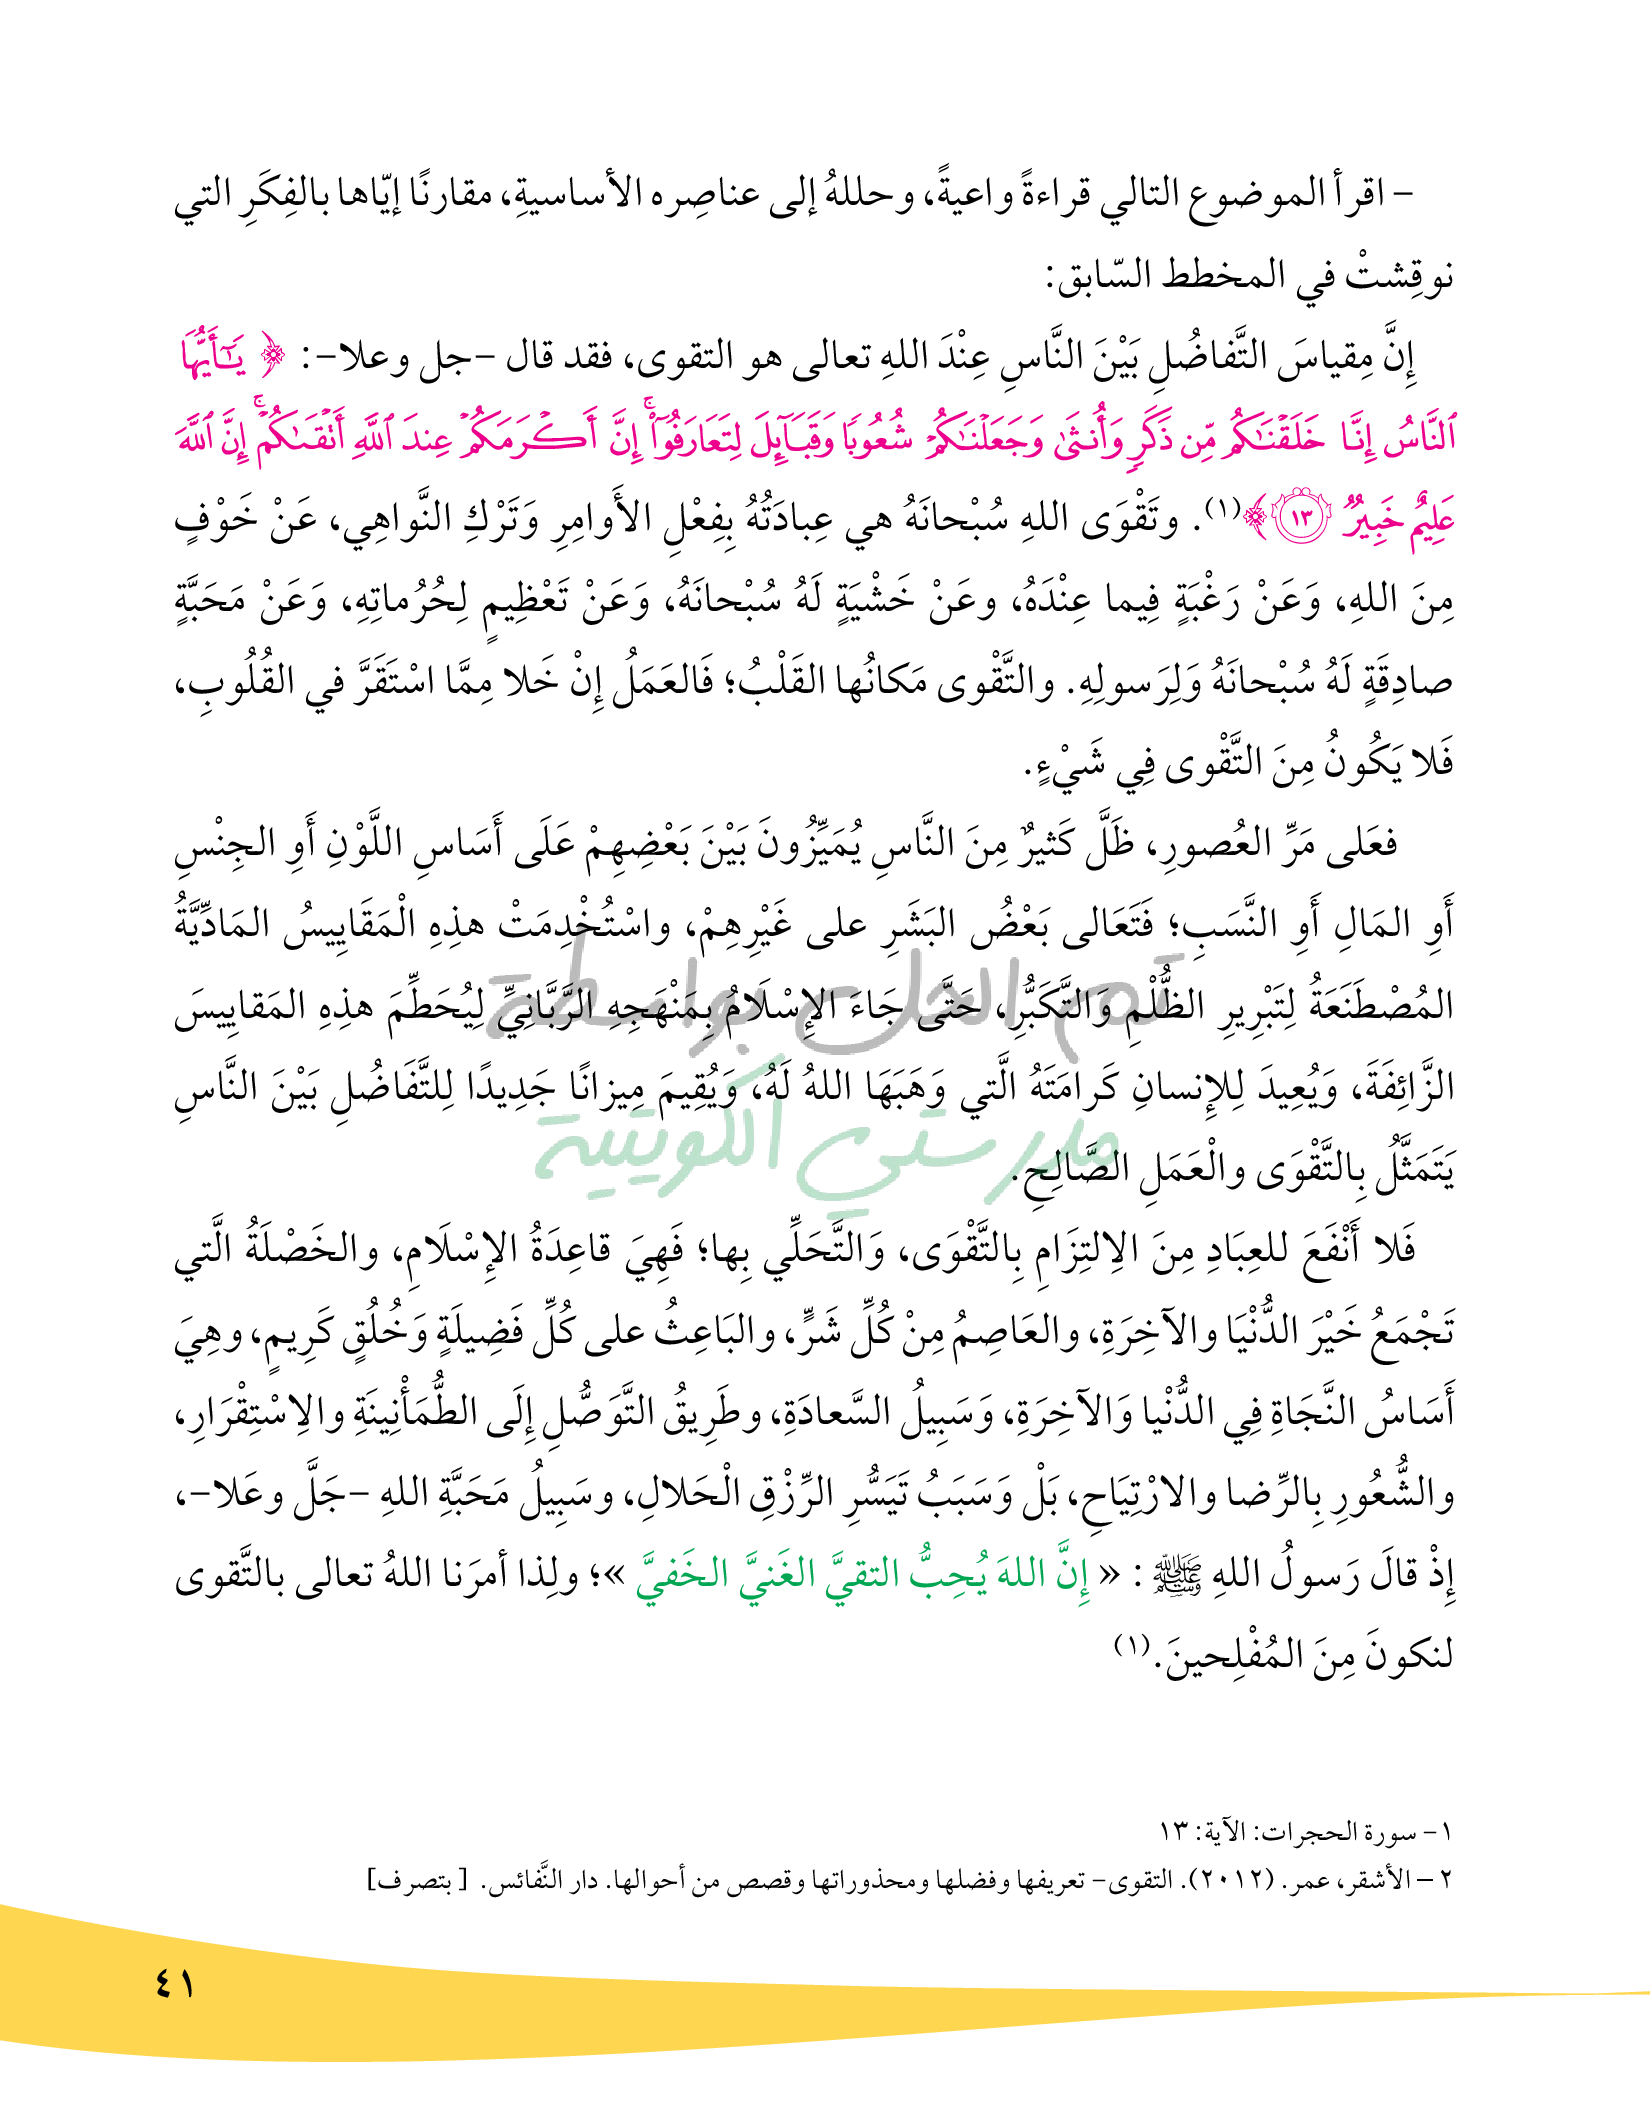 – اقرأ الموضوع التالي قراءةً واعيةً، وحللهُ إلى عناصِره الأساسيةِ، مقارنًا إيّاها بالفِكَرِ التي
نوقِشتْ في المخطط السّابق:
إِنَّ مِقياسَ التَّفاضُلِ بَيْنَ النَّاسِ عِنْدَ اللهِ تعالى هو التقوى، فقد قال -جل وعلا-: ﴿ يَٰٓأَيُّهَا
ٱلنَّاسُ إِنَّا خَلَقْنَٰكُم مِّن ذَكَرٍ وَأُنثَىٰ وَجَعَلْنَٰكُمْ شُعُوبًا وَقَبَآئِلَ لِتَعَارَفُوٓا۟ ۚ إِنَّ أَكْرَمَكُمْ عِندَ ٱللَّهِ أَتْقَىٰكُمْ ۚ إِنَّ ٱللَّهَ
عَلِيمٌ خَبِيرٌ ١٣ ﴾(١). وتَقْوَى اللهِ سُبْحانَهُ هي عِبادَتُهُ بِفِعْلِ الأَوامِرِ وَتَرْكِ النَّواهِي، عَنْ خَوْفٍ
مِنَ اللهِ، وَعَنْ رَغْبَةٍ فِيما عِنْدَهُ، وعَنْ خَشْيَةٍ لَهُ سُبْحانَهُ، وَعَنْ تَعْظِيمٍ لِحُرُماتِهِ، وَعَنْ مَحَبَّةٍ
صادِقَةٍ لَهُ سُبْحانَهُ وَلِرَسولِهِ. والتَّقْوى مَكانُها القَلْبُ؛ فَالعَمَلُ إِنْ خَلا مِمَّا اسْتَقَرَّ في القُلُوبِ،
فَلا يَكُونُ مِنَ التَّقْوى فِي شَيْءٍ.
فعَلى مَرِّ العُصورِ، ظَلَّ كَثيرٌ مِنَ النَّاسِ يُمَيِّزُونَ بَيْنَ بَعْضِهِمْ عَلَى أَسَاسِ اللَّوْنِ أَوِ الجِنْسِ
أَوِ المَالِ أَوِ النَّسَبِ؛ فَتَعَالى بَعْضُ البَشَرِ على غَيْرِهِمْ، واسْتُخْدِمَتْ هذِهِ الْمَقَايِيسُ المَادِّيَّةُ
المُصْطَنَعَةُ لِتَبْرِيرِ الظُّلْمِ وَالتَّكَبُّرِ، حَتَّى جَاءَ الإِسْلَامُ بِمَنْهَجِهِ الرَّبَّانِيِّ لِيُحَطِّمَ هذِهِ المَقايِيسَ
تم الحل بواسطة
الزَّائِفَةَ، وَيُعِيدَ لِلإِنسانِ كَرامَتَهُ الَّتي وَهَبَهَا اللهُ لَهُ، وَيُقِيمَ مِيزانًا جَدِيدًا لِلتَّفَاضُلِ بَيْنَ النَّاسِ
مدرستي الكويتية
يَتَمَثَّلُ بِالتَّقْوَى والْعَمَلِ الصَّالِحِ.
فَلا أَنْفَعَ للعِبَادِ مِنَ الِالتِزَامِ بِالتَّقْوَى، وَالتَّحَلِّي بِها؛ فَهِيَ قاعِدَةُ الإِسْلَامِ، والخَصْلَةُ الَّتي
تَجْمَعُ خَيْرَ الدُّنْيَا والآخِرَةِ، والعَاصِمُ مِنْ كُلِّ شَرٍّ، والبَاعِثُ على كُلِّ فَضِيلَةٍ وَخُلُقٍ كَرِيمٍ، وهِيَ
أَسَاسُ النَّجَاةِ فِي الدُّنْيا وَالآخِرَةِ، وَسَبِيلُ السَّعادَةِ، وطَرِيقُ التَّوَصُّلِ إِلَى الطُّمَأْنِينَةِ والِاسْتِقْرَارِ،
والشُّعُورِ بِالرِّضا والارْتِيَاحِ، بَلْ وَسَبَبُ تَيَسُّرِ الرِّزْقِ الْحَلالِ، وسَبِيلُ مَحَبَّةِ اللهِ -جَلَّ وعَلا-،
إِذْ قالَ رَسولُ اللهِ ﷺ : « إِنَّ اللهَ يُحِبُّ التقيَّ الغَنيَّ الخَفيَّ »؛ ولِذا أمرَنا اللهُ تعالى بالتَّقوى
لنكونَ مِنَ المُفْلِحينَ.(١)
١- سورة الحجرات: الآية: ١٣
٢ – الأشقر، عمر. (٢٠١٢). التقوى- تعريفها وفضلها ومحذوراتها وقصص من أحوالها. دار النَّفائس. [ بتصرف]
٤١